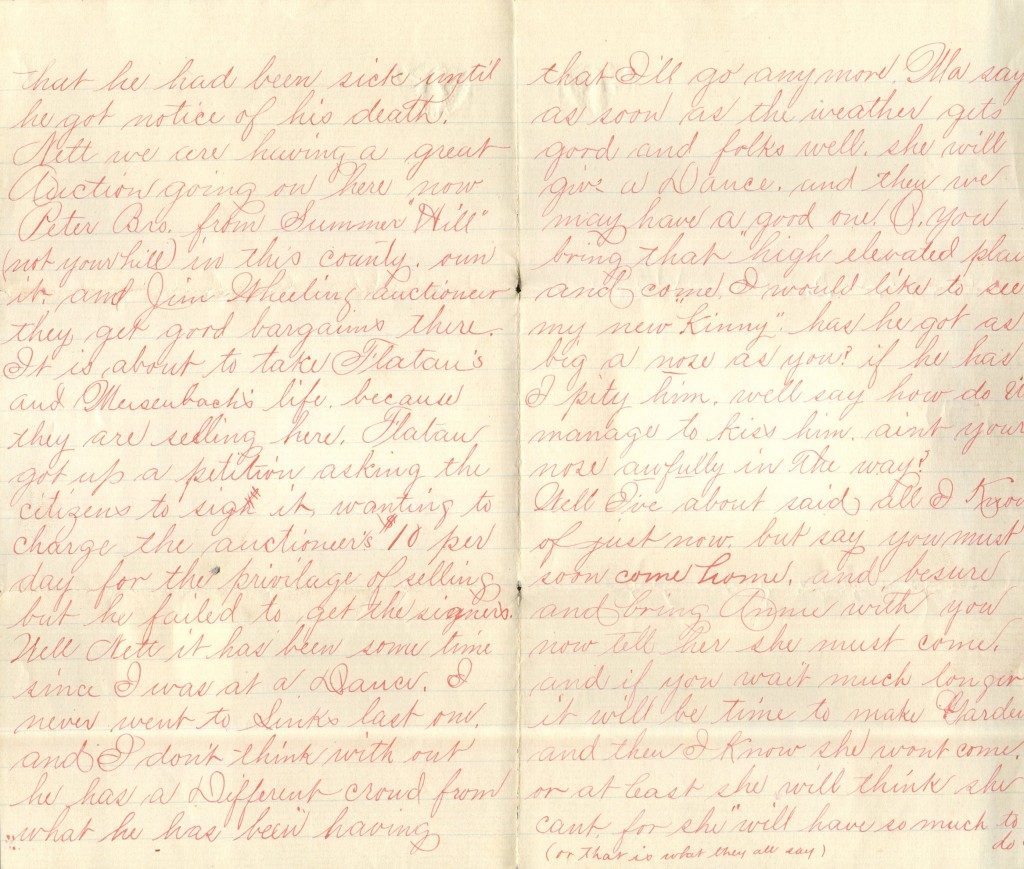 that he had been sick until
he got notice of his death.
Nett we are having a great
Auction going on here now
Peter Bros. from Summer "Hill"
(not your hill) in this county. own
it. and Jim Wheeling auctioneer
they get good bargains there.
It is about to take Flatau's
and Meisenbach's life. because
they are selling here. Flatau
got up a petition asking the
citizens to sign it wanting to
charge the auctioneer's $10 per
day for the privilage of selling
but he failed to get the signers.
Well Nett it has been some time
since I was at a Dance. I
never went to Links last one.
and I don't think with out
he has a Different croud from
what he has "been" having
that I'll go any more. Ma say
as soon as the weather gets
good and folks well. she will
give a Dance. and then we
may have a good one. O, you
bring that "high elevated plai
and come I would like to see
my new "Kinny". has he got as
big a nose as you? if he has
I pity him. well say how do U
manage to kiss him. aint your
nose awfully in the way?
Well I've about said all I Know
of just now. but say you must
soon come home. and besure
and bring Annie with you
now tell her she must come.
and if you wait much longer
it will be time to make Garde
and then I know she wont come.
or at least she will think she
cant. for she "will have so much to
do
(or that is what they all say)